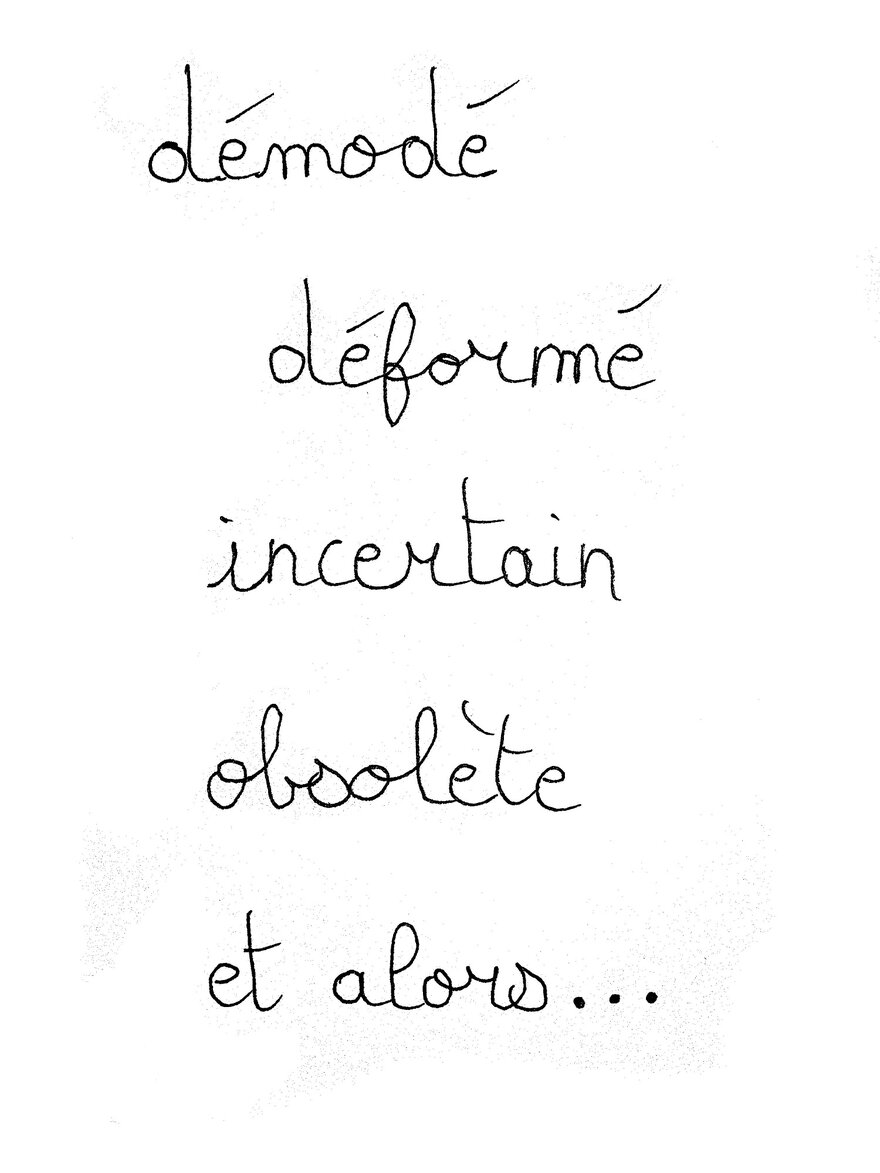 démodé
déformé
incertain
obsolète
et alors...